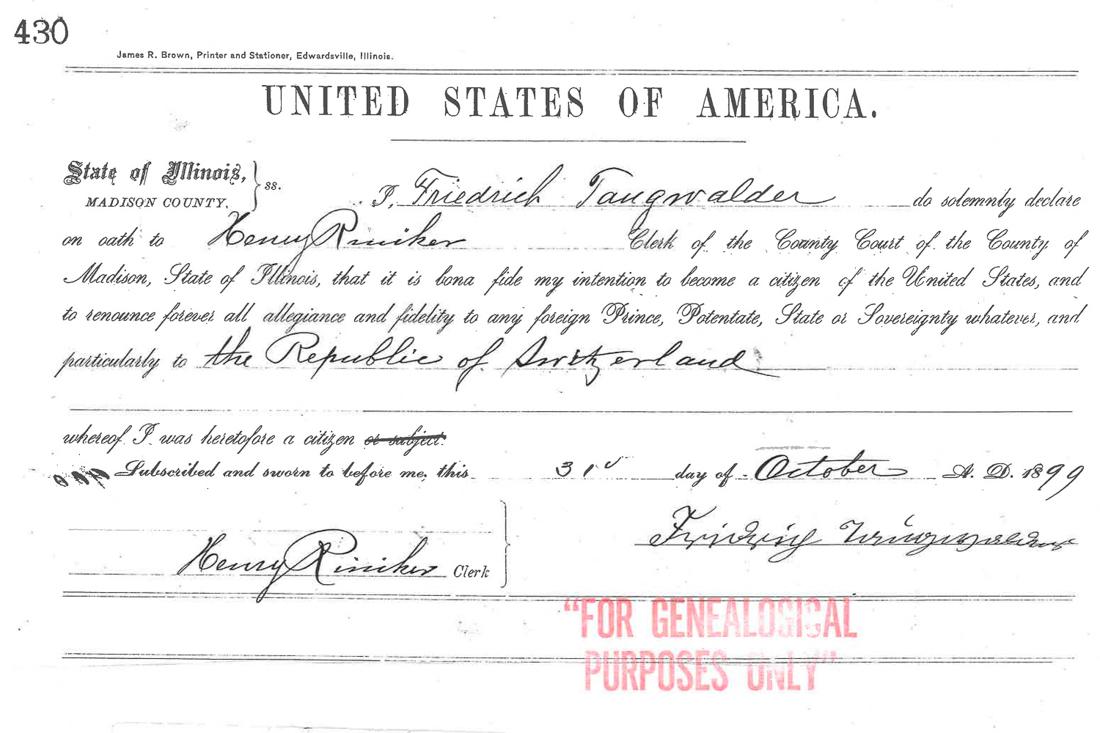 430
James R. Brown, Printer and Stationer, Edwardsville, Illinois.
UNITED STATES OF AMERICA.
State of Illinois,
MADISON COUNTY.
ss.
I, Friedrich Taugwalder do solemnly declare
on oath to Henry Riniker Clerk of the County Court of the County of
Madison, State of Illinois, that it is bona fide my intention to become a citizen of the United States, and
to renounce forever all allegiance and fidelity to any foreign Prince, Potentate, State or Sovereignty whatever, and
particularly to the Republic of Switzerland
whereof I was heretofore a citizen or subject.
Subscribed and sworn to before me, this 31 day of October A. D. 1899
Friedrich Taugwalder
Henry Riniker Clerk
"FOR GENEALOGICAL
PURPOSES ONLY"